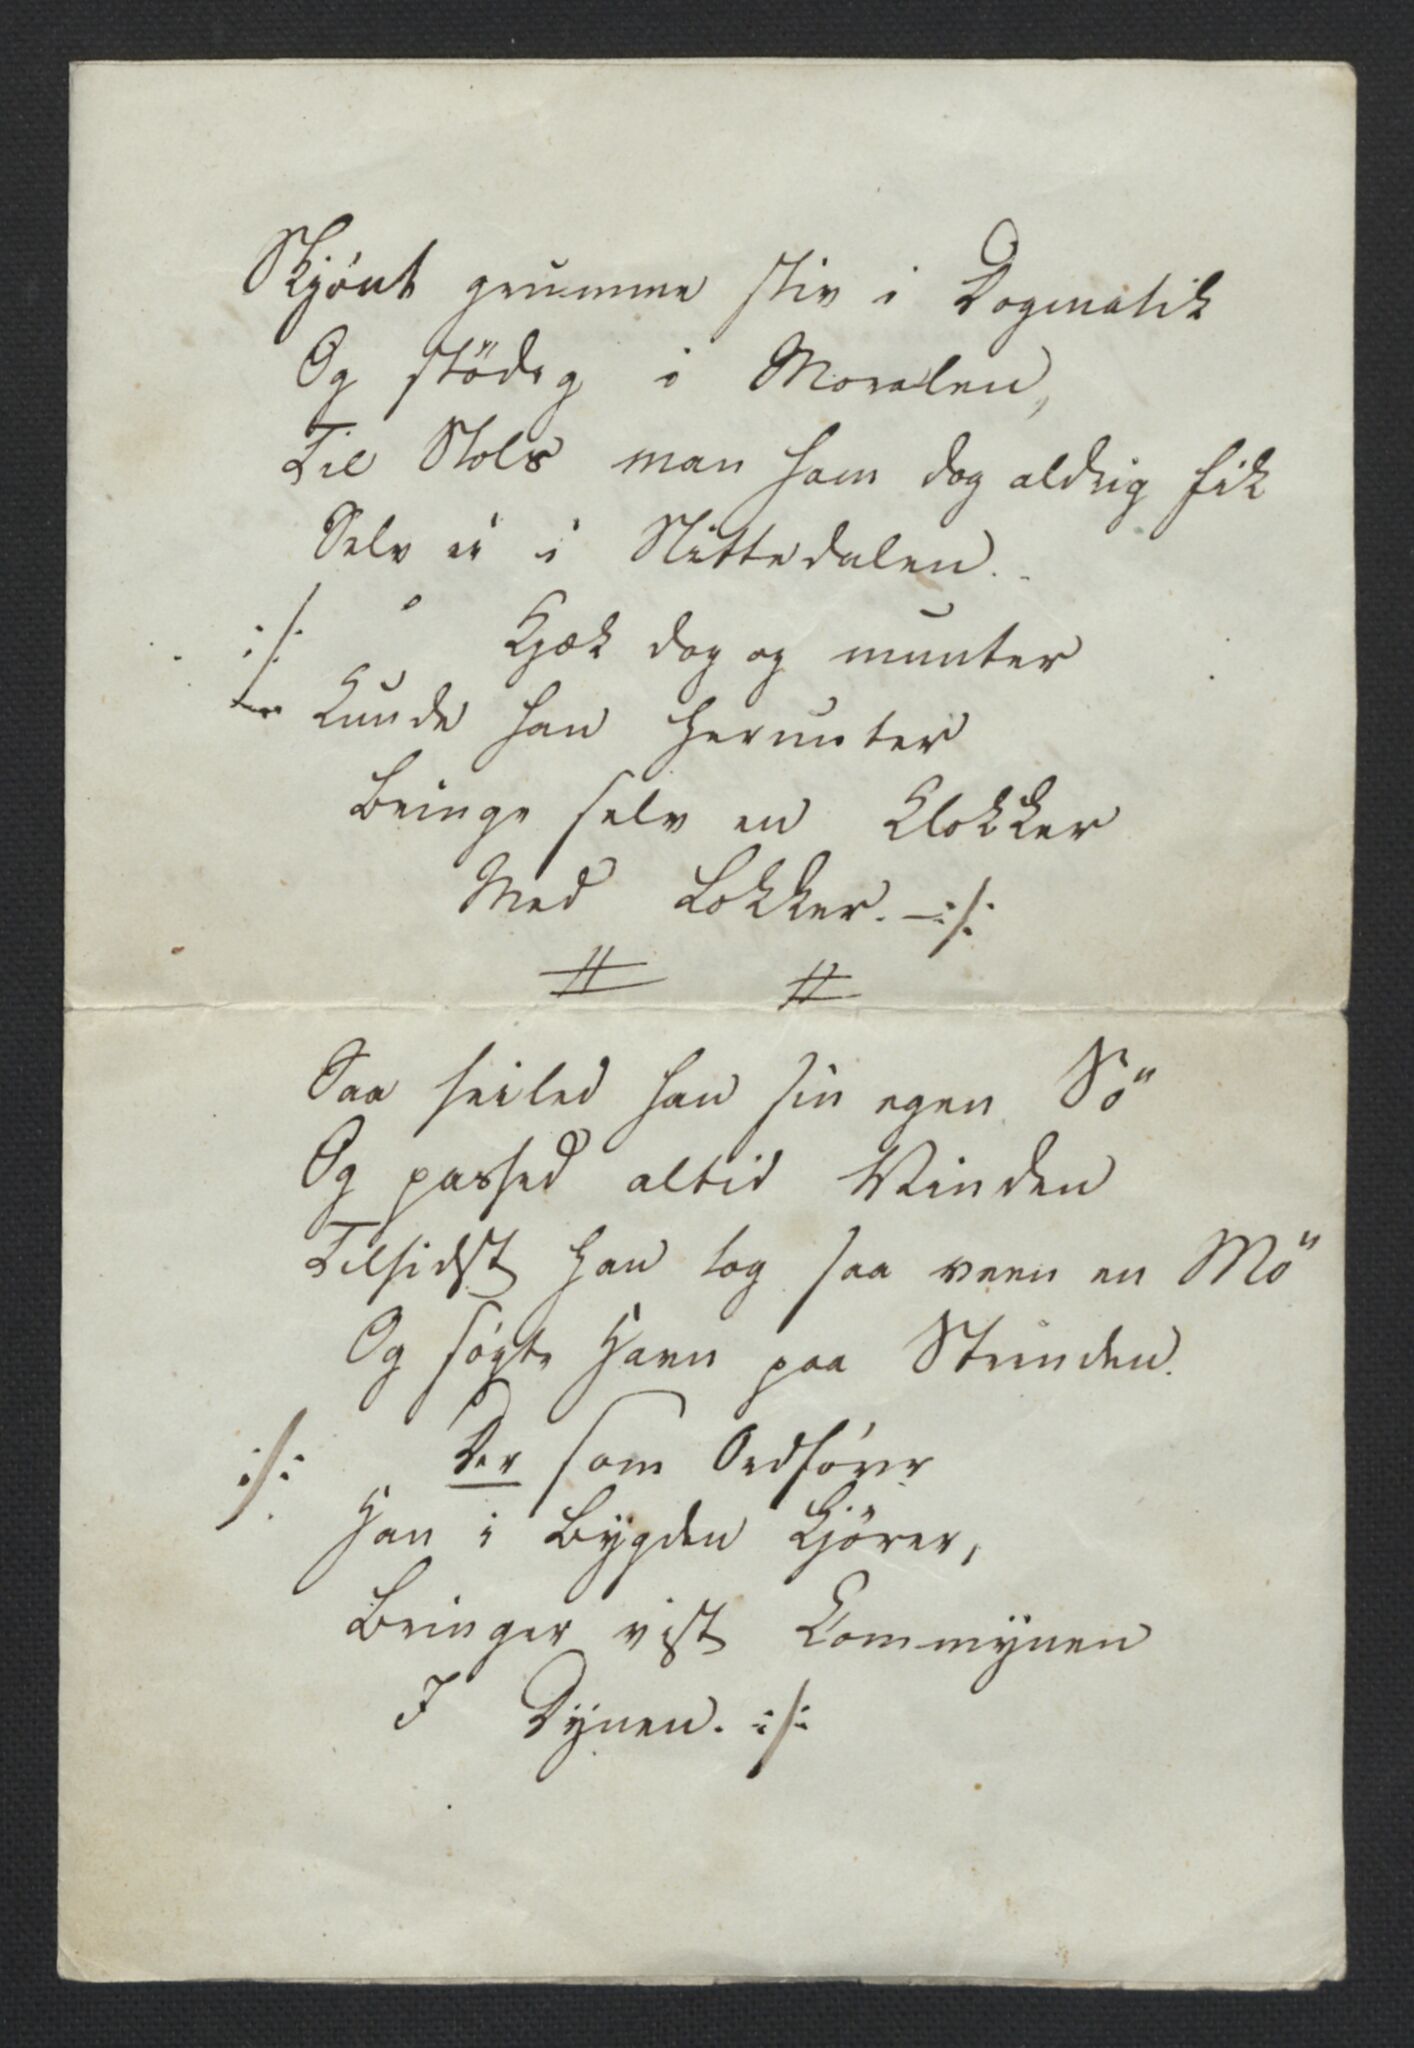 Skjönt grumme stiv i Dogmatik
Og stödig i Moralen,
Til Stols man ham dog aldrig fik
Selv ei i Nittedalen.
:/: Kjæk dog og munter
Kunde han herunter
Bringe selv en Klokker
Med Lokker. :/:
Saa seiled han sin egen Sö
Og passed altid Vinden
Tilsidst han tog saa veen en Mö
Og søgte Havn paa Strinden.
:/: Der som Ordfører
Han i Bygden Kjörer,
Bringer vist Commynen
I Dynen. :/: